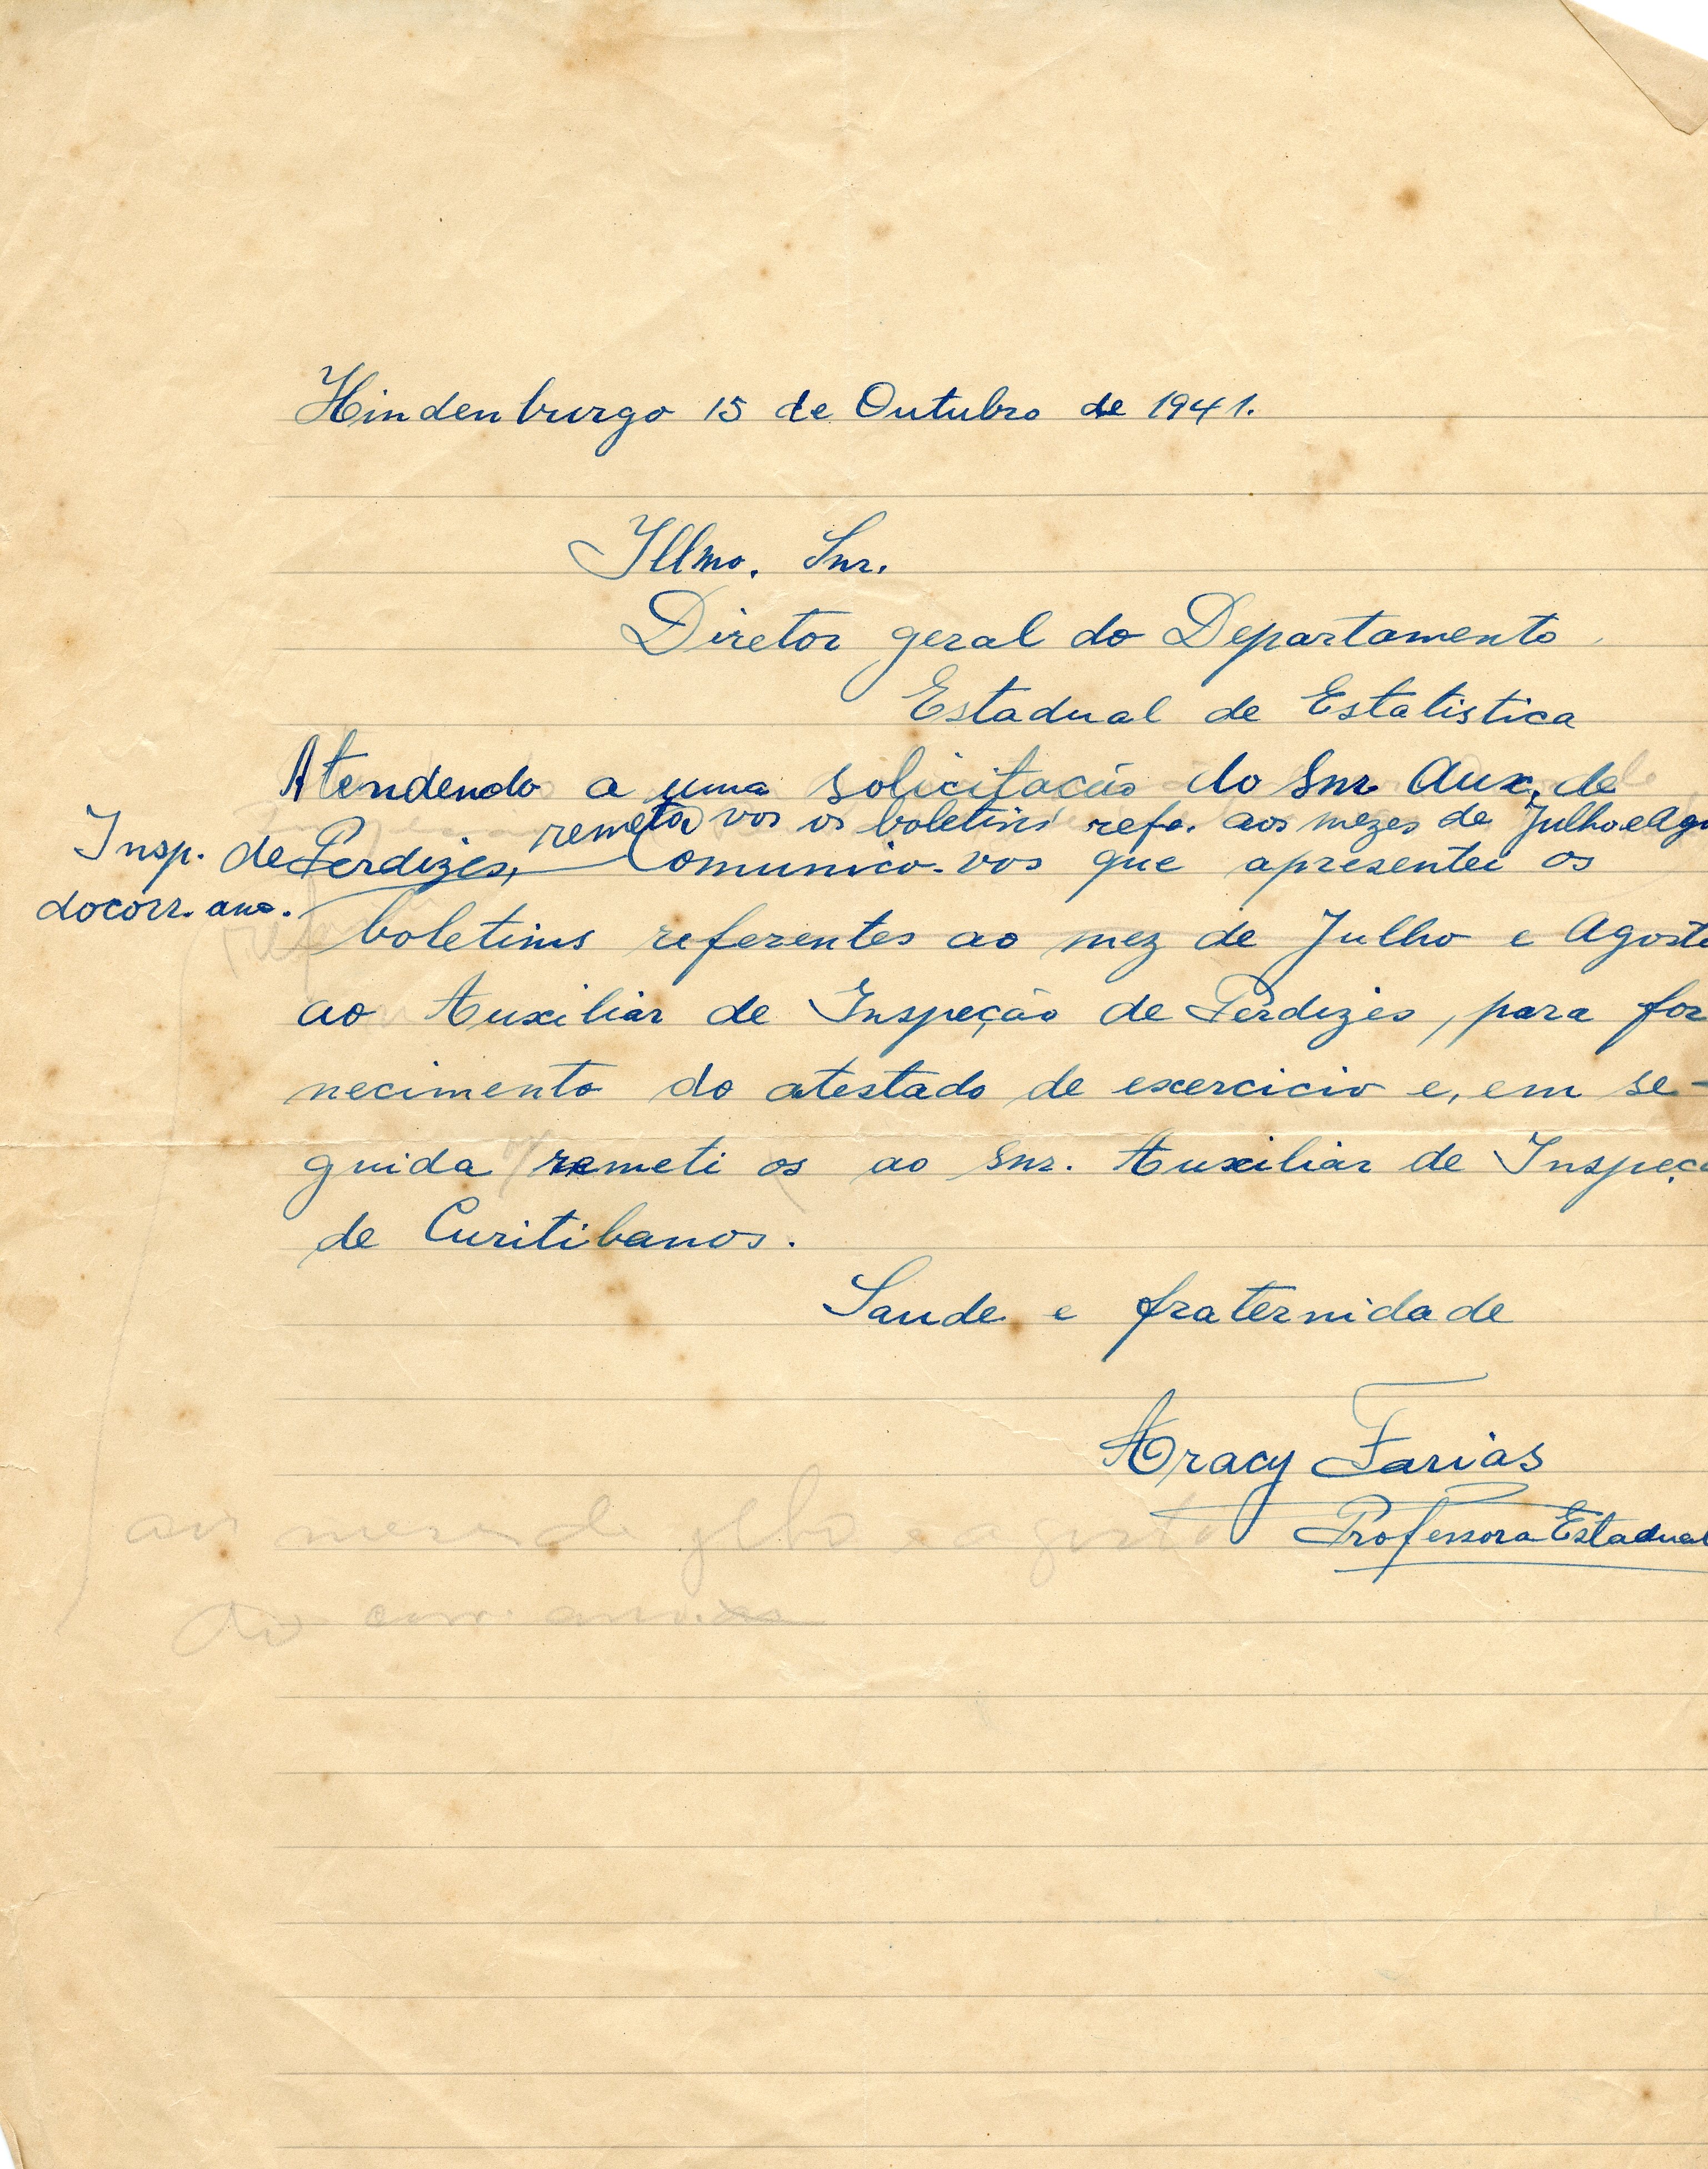 Hindenburgo 15 de Outubro de 1941.
Illmo. Snr.
Diretor geral do Departamento
Estadual de Estatistica
Atendendo a uma solicitação do Snr Aux. de
remeto vos os boletins refe. aos mezes de Julho e Ago
Insp. de Perdizes, Comunico-vos que apresentei os
do corr. ano.
boletins referentes ao mez de Julho e Agosto
ao Auxiliar de Inspeção de Perdizes, para for
necimento do atestado de exercicio e, em se-
guida remeti os ao Snr. Auxiliar de Inspeçã
de Curitibanos.
Saude e fraternidade
Aracy Farias
Professora Estadual
aos mezes de julho e agosto
do corr. anno